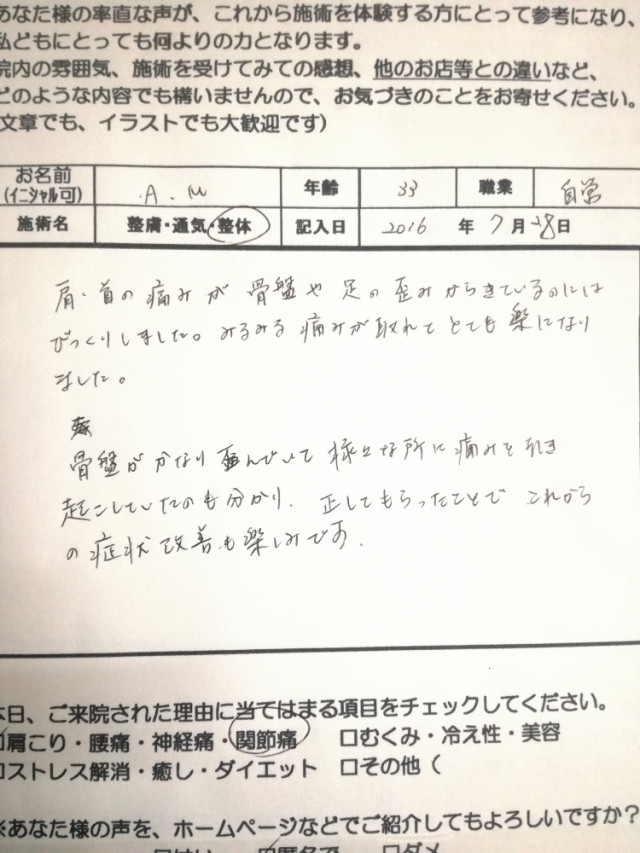 あなた様の率直な声が、これから施術を体験する方にとって参考になり、
私どもにとっても何よりの力となります。
院内の雰囲気、施術を受けてみての感想、他のお店等との違いなど、
どのような内容でも構いませんので、お気づきのことをお寄せください。
(文章でも、イラストでも大歓迎です)
お名前(イニシャル可) A.M 年齢 33 職業 自営
施術名 整膚・通気・整体 記入日 2016 年 7 月 28 日
肩・首の痛みが骨盤や足の歪みからきているのには
びっくりしました。みるみる痛みが取れてとても楽になり
ました。
骨盤がかなり歪んでいて様々な所に痛みを引き
起こしていたのも分かり、正してもらったことでこれから
の症状改善も楽しみです。
本日、ご来院された理由に当てはまる項目をチェックしてください。
□肩こり・腰痛・神経痛・関節痛 □むくみ・冷え性・美容
□ストレス解消・癒し・ダイエット □その他（
※あなた様の声を、ホームページなどでご紹介してもよろしいですか？
□はい ☑匿名で □ダメ